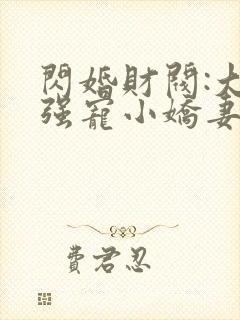 閃婚財閥:大
强寵小嬌妻
費君忍